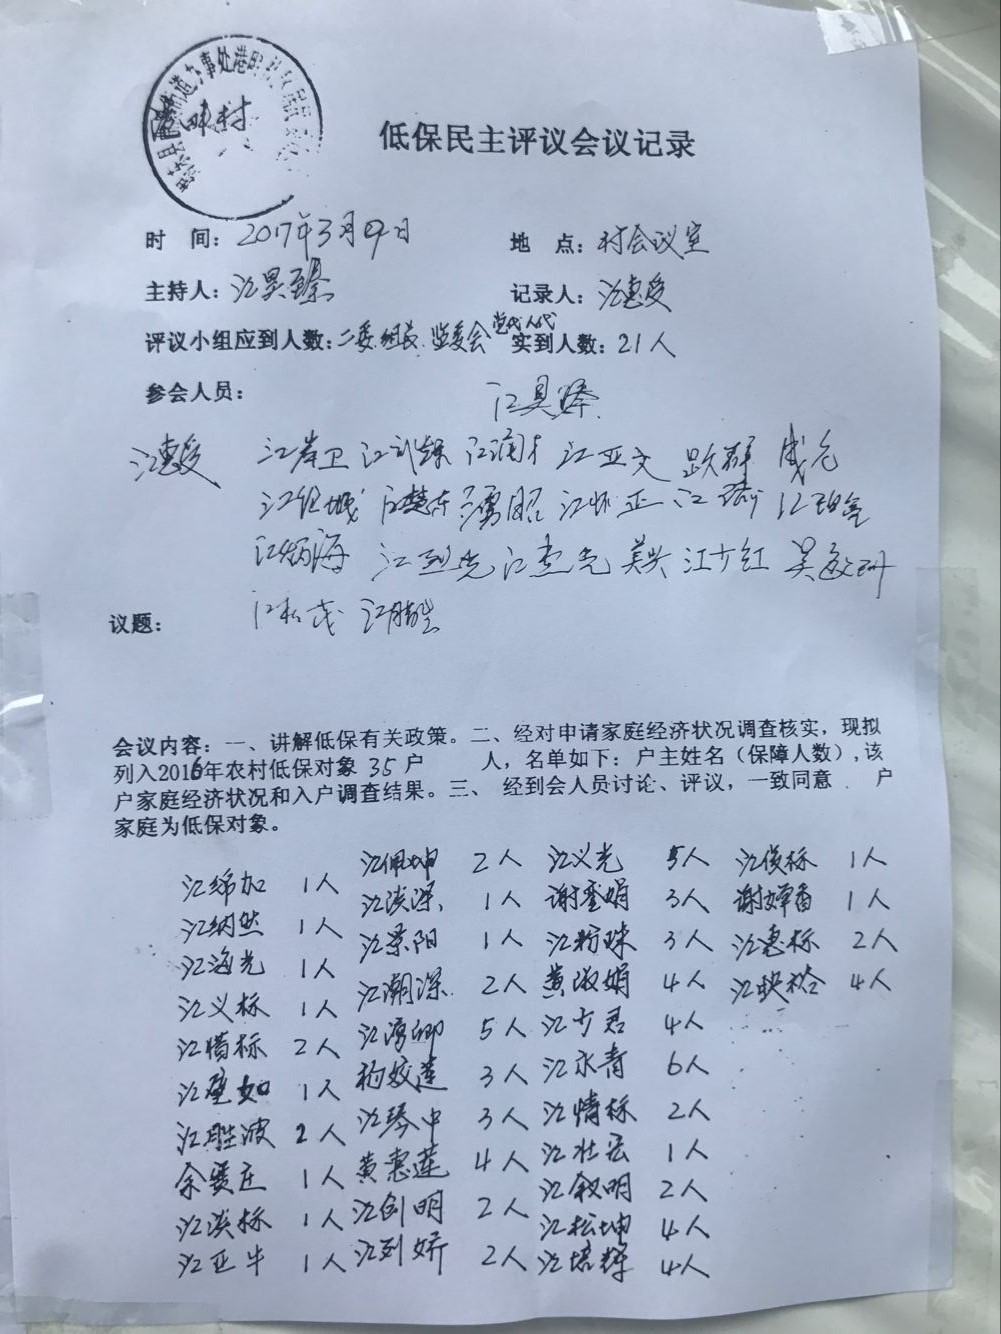 道办事处港
村
低保民主评议会议记录
时 间：2017年3月9日 地 点：村会议室
主持人：江 记录人：江惠
评议小组应到人数：二委 组长 监委会 党代人代 实到人数：21人
参会人员：
江
江惠 江岸卫 江 江 江亚文 跃群
江 江楚 江怀正 江 江
江炳海 江烈光 江杰光 美兴 江少红 吴
议题： 江松茂 江胜
会议内容：一、讲解低保有关政策。二、经对申请家庭经济状况调查核实，现拟
列入2016年农村低保对象 35户 人，名单如下：户主姓名（保障人数），该
户家庭经济状况和入户调查结果。三、 经到会人员讨论、评议，一致同意 户
家庭为低保对象。
江绵加 1人 江佩坤 2人 江义光 5人 江俊标 1人
江纳然 1人 江淡深 1人 谢 娟 3人 谢婵香 1人
江海光 1人 江景阳 1人 江粉珠 3人 江惠标 2人
江义标 1人 江潮深 2人 黄淑娟 4人 江 4人
江惜标 2人 江 卿 5人 江少君 4人
江 如 1人 杨姣莲 3人 江永青 6人
江胜波 2人 江琴中 3人 江情标 2人
余 庄 1人 黄惠莲 4人 江壮 1人
江淡标 1人 江创明 2人 江叙明 2人
江亚牛 1人 江列娇 2人 江松坤 4人
江培辉 4人